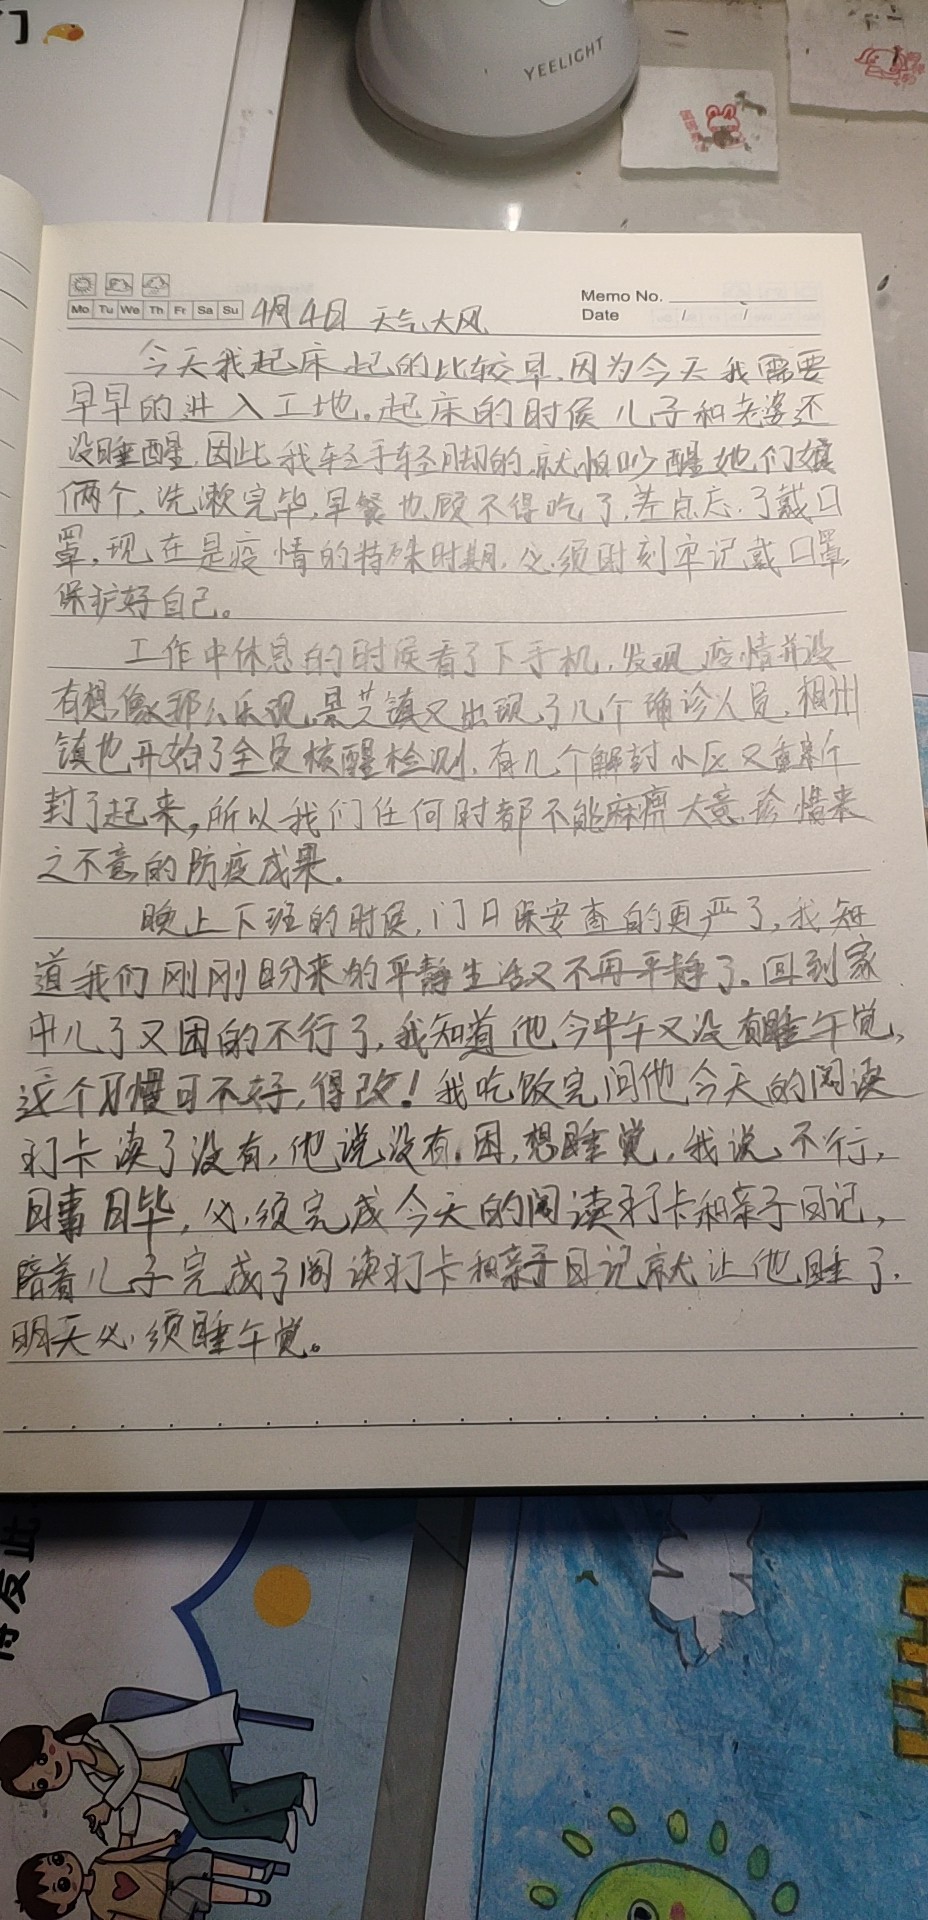 YEELIGHT
Memo No.
Mo Tu We Th Fr Sa Su
Date / /
4月4日 天气大风
今天我起床起的比较早,因为今天我需要
早早的进入工地。起床的时候儿子和老婆还
没睡醒,因此我轻手轻脚的,就怕吵醒她们娘
俩个,洗漱完毕,早餐也顾不得吃了,差点忘了戴口
罩,现在是疫情的特殊时期,必须时刻牢记戴口罩,
保护好自己。
工作中休息的时候看了下手机,发现疫情并没
有想像那么乐观,景芝镇又出现了几个确诊人员,相州
镇也开始了全员核醒检测,有几个解封小区又重新
封了起来,所以我们任何时都不能麻痹大意,珍惜来
之不意的防疫成果。
晚上下班的时候,门口保安查的更严了,我知
道我们刚刚盼来的平静生活又不再平静了。回到家
中儿子又困的不行了,我知道他今中午又没有睡午觉,
这个习惯可不好,得改!我吃饭完问他今天的阅读
打卡读了没有,他说没有。困,想睡觉,我说,不行,
日事日毕,必须完成今天的阅读打卡和亲子日记,
陪着儿子完成了阅读打卡和亲子日记就让他睡了,
明天必须睡午觉。